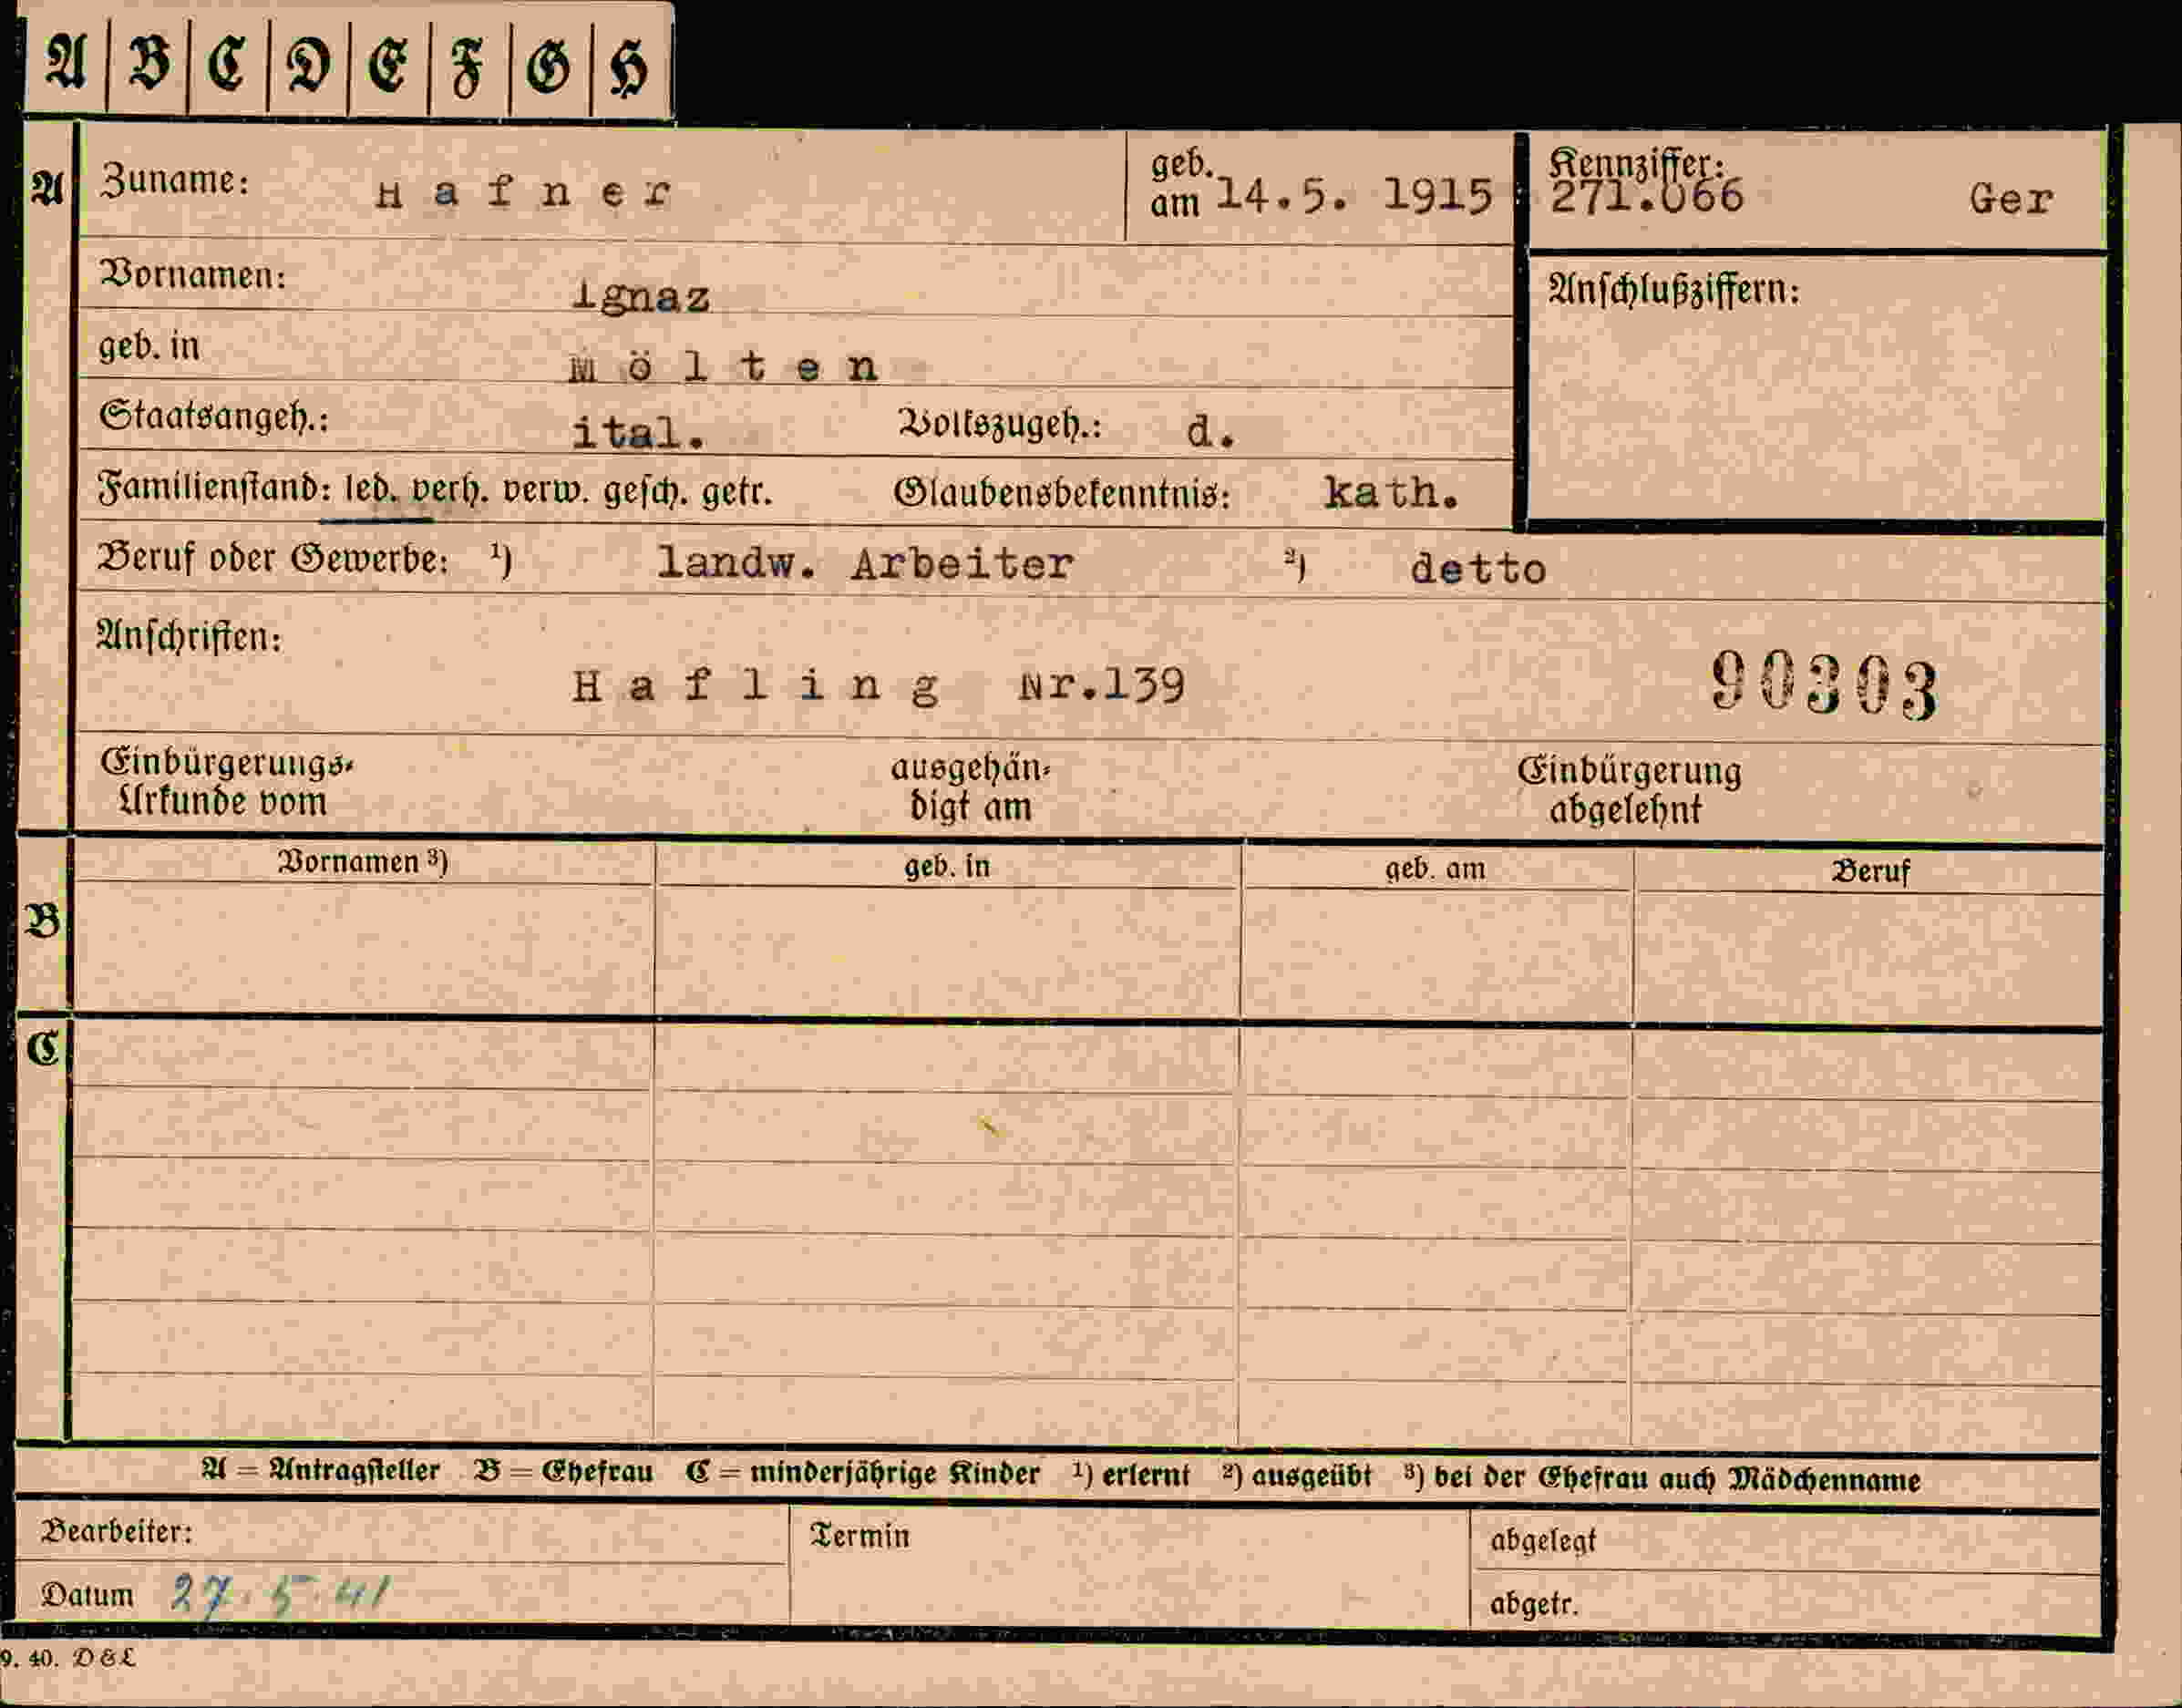 A B C D E F G H
A Zuname: Hafner geb. am 14.5. 1915 Kennziffer: 271.066 Ger
Vornamen: Ignaz Anschlußziffern:
geb. in Mölten
Staatsangeh.: ital. Volkszugeh.: d.
Familienstand: led. verh. verw. gesch. getr. Glaubensbekenntnis: kath.
Beruf oder Gewerbe: ¹) landw. Arbeiter ²) detto
Anschriften:
Hafling Nr.139 90303
Einbürgerungs- ausgehän- Einbürgerung
Urkunde vom digt am abgelehnt
Vornamen ³) geb. in geb. am Beruf
B
C
A = Antragsteller B = Ehefrau C = minderjährige Kinder ¹) erlernt ²) ausgeübt ³) bei der Ehefrau auch Mädchenname
Bearbeiter: Termin abgelegt
Datum 27.5.41 abgetr.
9. 40. D & L